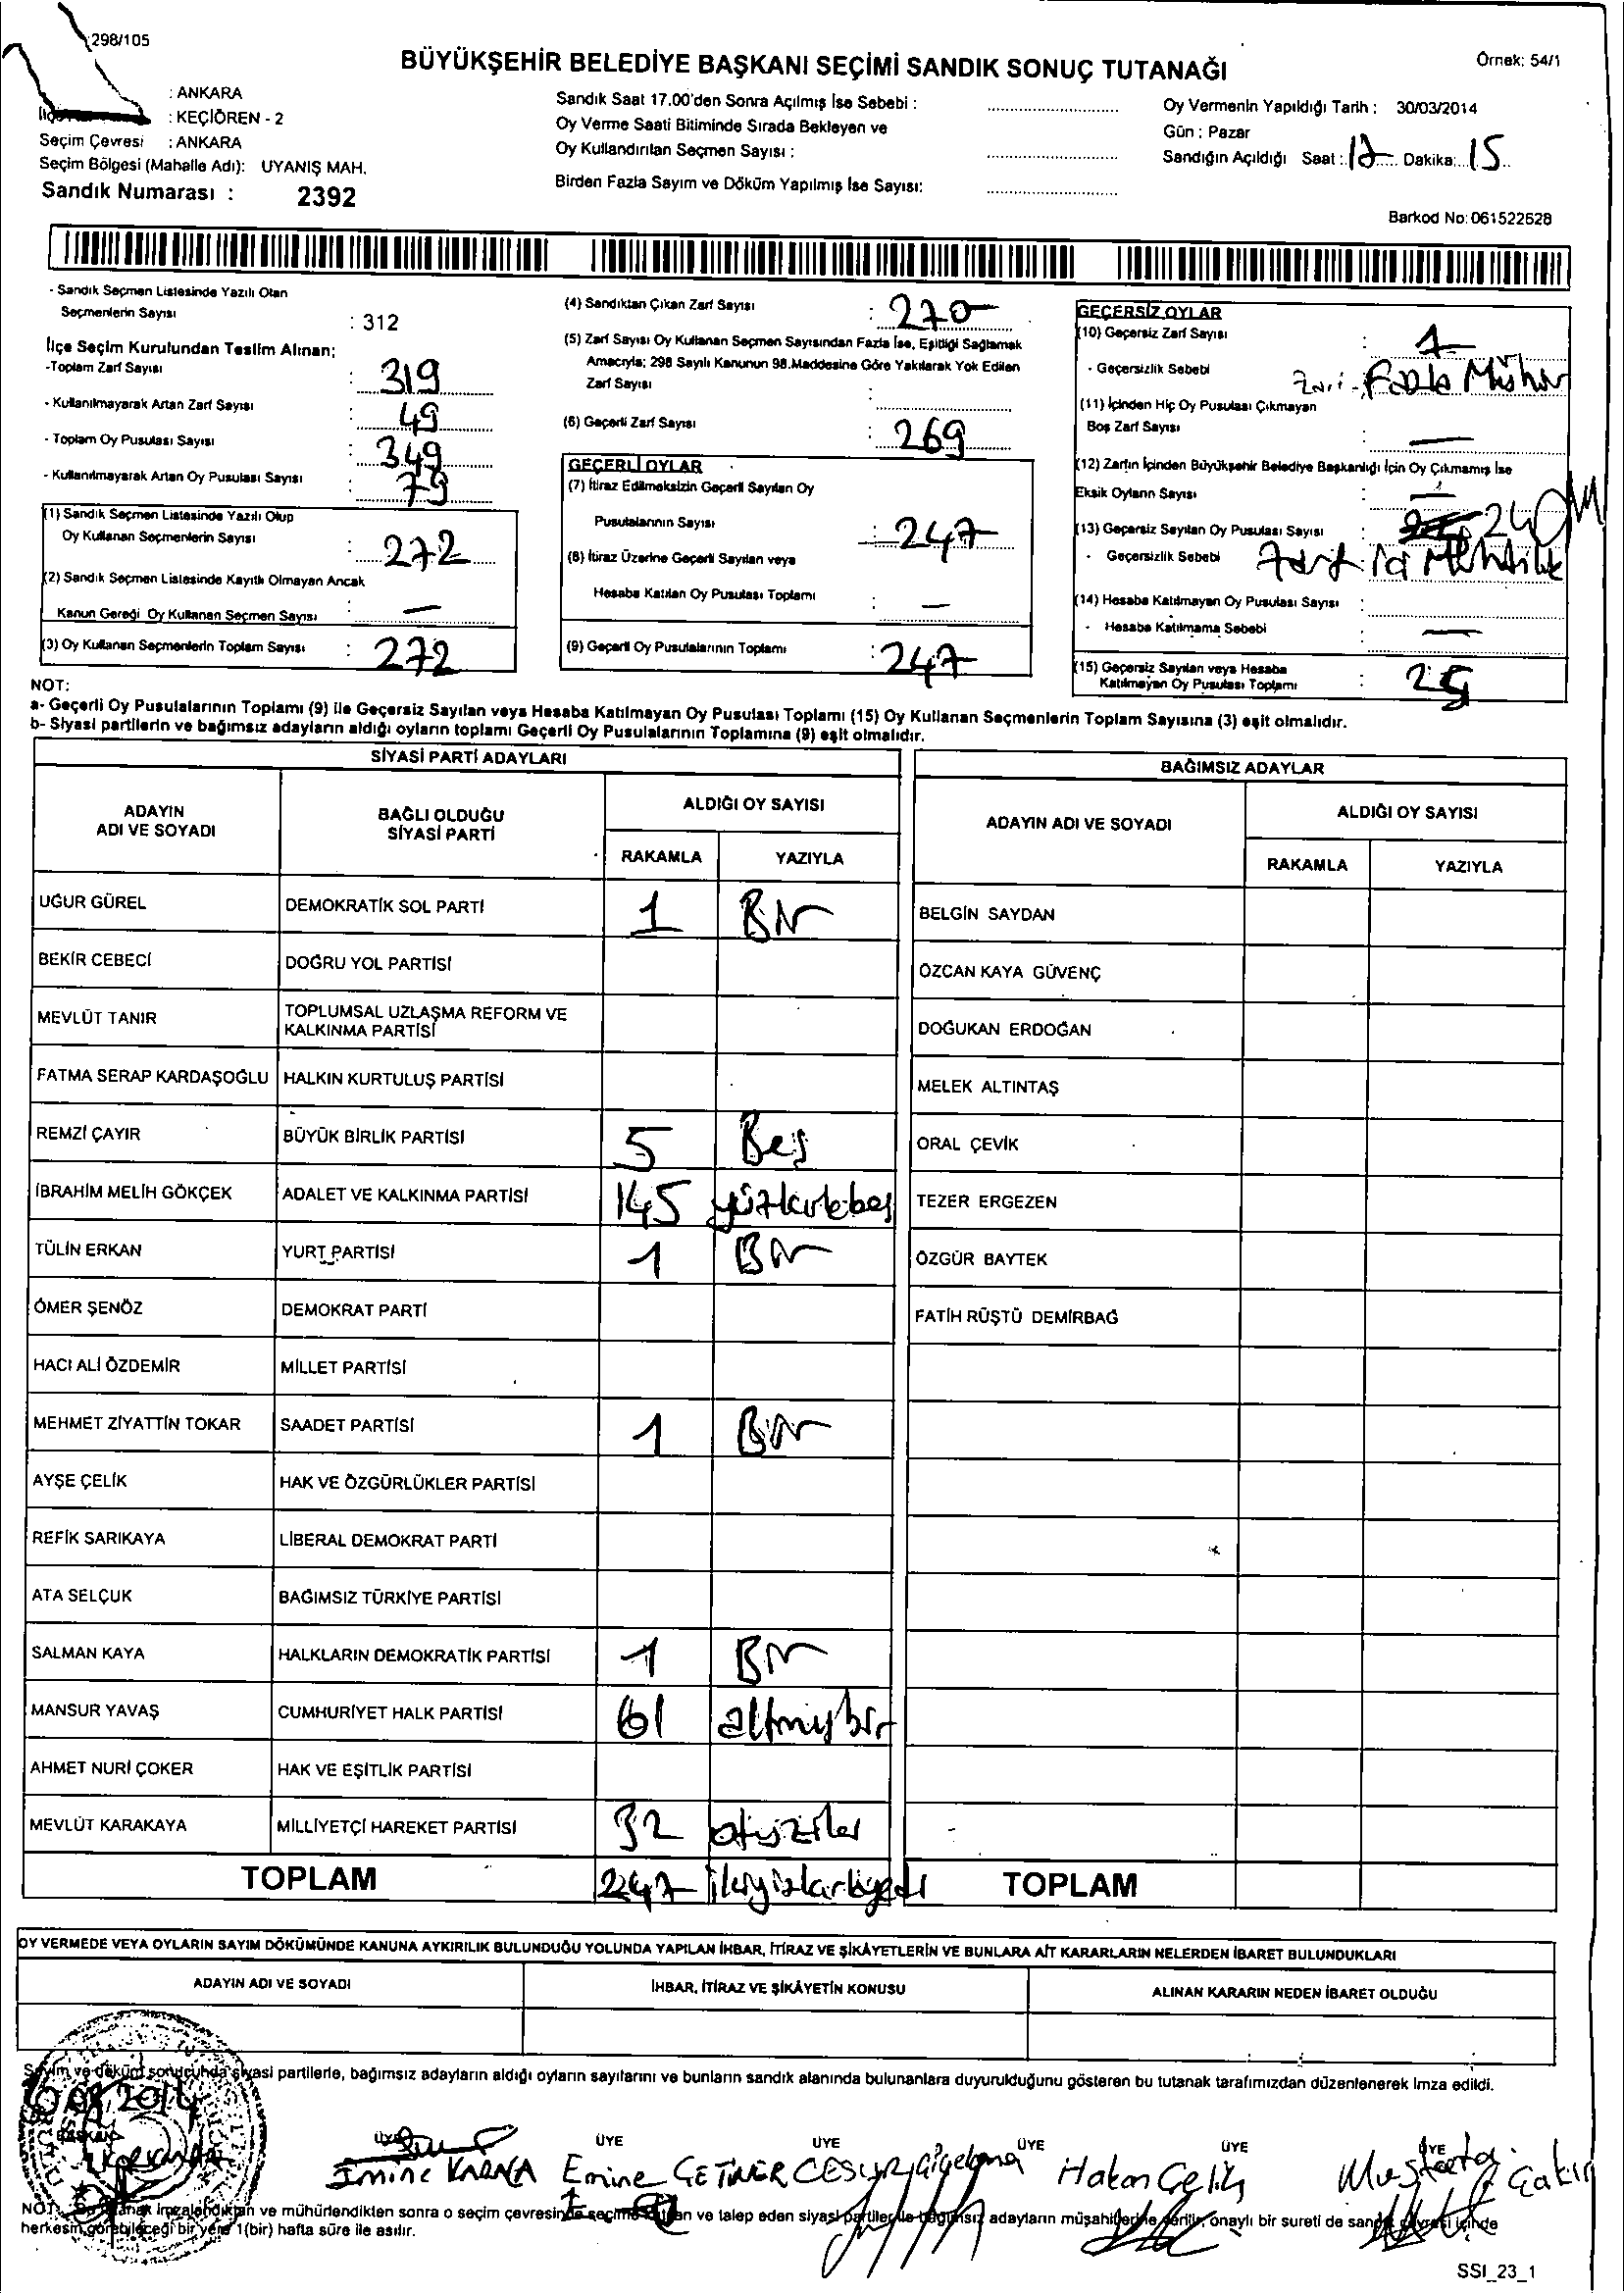 298/105
BÜYÜKŞEHİR BELEDİYE BAŞKANI SEÇİMİ SANDIK SONUÇ TUTANAĞI
Örnek: 54/1
: ANKARA
: KEÇİÖREN - 2
Seçim Çevresi : ANKARA
Seçim Bölgesi (Mahalle Adı): UYANIŞ MAH.
Sandık Numarası : 2392
Sandık Saat 17.00'den Sonra Açılmış İse Sebebi :
Oy Verme Saati Bitiminde Sırada Bekleyen ve
Oy Kullandırılan Seçmen Sayısı :
Birden Fazla Sayım ve Döküm Yapılmış İse Sayısı:
Oy Vermenin Yapıldığı Tarih : 30/03/2014
Gün : Pazar
Sandığın Açıldığı Saat : 17 Dakika: 15
Barkod No: 061522628
- Sandık Seçmen Listesinde Yazılı Olan
Seçmenlerin Sayısı : 312
İlçe Seçim Kurulundan Teslim Alınan;
-Toplam Zarf Sayısı : 319
- Kullanılmayarak Artan Zarf Sayısı : 49
- Toplam Oy Pusulası Sayısı : 349
- Kullanılmayarak Artan Oy Pusulası Sayısı : 79
(1) Sandık Seçmen Listesinde Yazılı Olup
Oy Kullanan Seçmenlerin Sayısı : 272
(2) Sandık Seçmen Listesinde Kayıtlı Olmayan Ancak
Kanun Gereği Oy Kullanan Seçmen Sayısı : —
(3) Oy Kullanan Seçmenlerin Toplam Sayısı : 272
(4) Sandıktan Çıkan Zarf Sayısı : 270
(5) Zarf Sayısı Oy Kullanan Seçmen Sayısından Fazla İse, Eşitliği Sağlamak
Amacıyla; 298 Sayılı Kanunun 98.Maddesine Göre Yakılarak Yok Edilen
Zarf Sayısı :
(6) Geçerli Zarf Sayısı : 269
GEÇERLİ OYLAR
(7) İtiraz Edilmeksizin Geçerli Sayılan Oy
Pusulalarının Sayısı : 247
(8) İtiraz Üzerine Geçerli Sayılan veya
Hesaba Katılan Oy Pusulası Toplamı : —
(9) Geçerli Oy Pusulalarının Toplamı : 247
GEÇERSİZ OYLAR
(10) Geçersiz Zarf Sayısı : 1
- Geçersizlik Sebebi Fazla Mühür
(11) İçinden Hiç Oy Pusulası Çıkmayan
Boş Zarf Sayısı : —
(12) Zarfın İçinden Büyükşehir Belediye Başkanlığı İçin Oy Çıkmamış İse
Eksik Oyların Sayısı : —
(13) Geçersiz Sayılan Oy Pusulası Sayısı :
- Geçersizlik Sebebi
(14) Hesaba Katılmayan Oy Pusulası Sayısı :
- Hesaba Katılmama Sebebi : —
(15) Geçersiz Sayılan veya Hesaba
Katılmayan Oy Pusulası Toplamı : 25
NOT:
a- Geçerli Oy Pusulalarının Toplamı (9) ile Geçersiz Sayılan veya Hesaba Katılmayan Oy Pusulası Toplamı (15) Oy Kullanan Seçmenlerin Toplam Sayısına (3) eşit olmalıdır.
b- Siyasi partilerin ve bağımsız adayların aldığı oyların toplamı Geçerli Oy Pusulalarının Toplamına (9) eşit olmalıdır.
SİYASİ PARTİ ADAYLARI
ADAYIN ADI VE SOYADI
BAĞLI OLDUĞU SİYASİ PARTİ
ALDIĞI OY SAYISI
RAKAMLA YAZIYLA
UĞUR GÜREL DEMOKRATİK SOL PARTİ 1 Bir
BEKİR CEBECİ DOĞRU YOL PARTİSİ
MEVLÜT TANIR TOPLUMSAL UZLAŞMA REFORM VE KALKINMA PARTİSİ
FATMA SERAP KARDAŞOĞLU HALKIN KURTULUŞ PARTİSİ
REMZİ ÇAYIR BÜYÜK BİRLİK PARTİSİ 5 Beş
İBRAHİM MELİH GÖKÇEK ADALET VE KALKINMA PARTİSİ 145 yüzkırkbeş
TÜLİN ERKAN YURT PARTİSİ 1 Bir
ÖMER ŞENÖZ DEMOKRAT PARTİ
HACI ALİ ÖZDEMİR MİLLET PARTİSİ
MEHMET ZİYATTİN TOKAR SAADET PARTİSİ 1 Bir
AYŞE ÇELİK HAK VE ÖZGÜRLÜKLER PARTİSİ
REFİK SARIKAYA LİBERAL DEMOKRAT PARTİ
ATA SELÇUK BAĞIMSIZ TÜRKİYE PARTİSİ
SALMAN KAYA HALKLARIN DEMOKRATİK PARTİSİ 1 Bir
MANSUR YAVAŞ CUMHURİYET HALK PARTİSİ 61 altmışbir
AHMET NURİ ÇOKER HAK VE EŞİTLİK PARTİSİ
MEVLÜT KARAKAYA MİLLİYETÇİ HAREKET PARTİSİ 32 otuziki
TOPLAM 247 ikiyüzkırkyedi
BAĞIMSIZ ADAYLAR
ADAYIN ADI VE SOYADI
ALDIĞI OY SAYISI
RAKAMLA YAZIYLA
BELGİN SAYDAN
ÖZCAN KAYA GÜVENÇ
DOĞUKAN ERDOĞAN
MELEK ALTINTAŞ
ORAL ÇEVİK
TEZER ERGEZEN
ÖZGÜR BAYTEK
FATİH RÜŞTÜ DEMİRBAĞ
TOPLAM
OY VERMEDE VEYA OYLARIN SAYIM DÖKÜMÜNDE KANUNA AYKIRILIK BULUNDUĞU YOLUNDA YAPILAN İHBAR, İTİRAZ VE ŞİKÂYETLERİN VE BUNLARA AİT KARARLARIN NELERDEN İBARET BULUNDUKLARI
ADAYIN ADI VE SOYADI
İHBAR, İTİRAZ VE ŞİKÂYETİN KONUSU
ALINAN KARARIN NEDEN İBARET OLDUĞU
Sayım ve döküm sonucunda siyasi partilerle, bağımsız adayların aldığı oyların sayılarını ve bunların sandık alanında bulunanlara duyurulduğunu gösteren bu tutanak tarafımızdan düzenlenerek imza edildi.
BAŞKAN ÜYE ÜYE ÜYE ÜYE ÜYE ÜYE
Emine KARACA Emine ÇETİNER Hakan Çelik Mustafa Çakır
NOT: Bu tutanak imzalandıktan ve mühürlendikten sonra o seçim çevresinde seçime katılan ve talep eden siyasi partiler ile bağımsız adayların müşahitlerine verilir, onaylı bir sureti de sandık çevresi içinde
herkesin görebileceği bir yere 1(bir) hafta süre ile asılır.
SSI_23_1